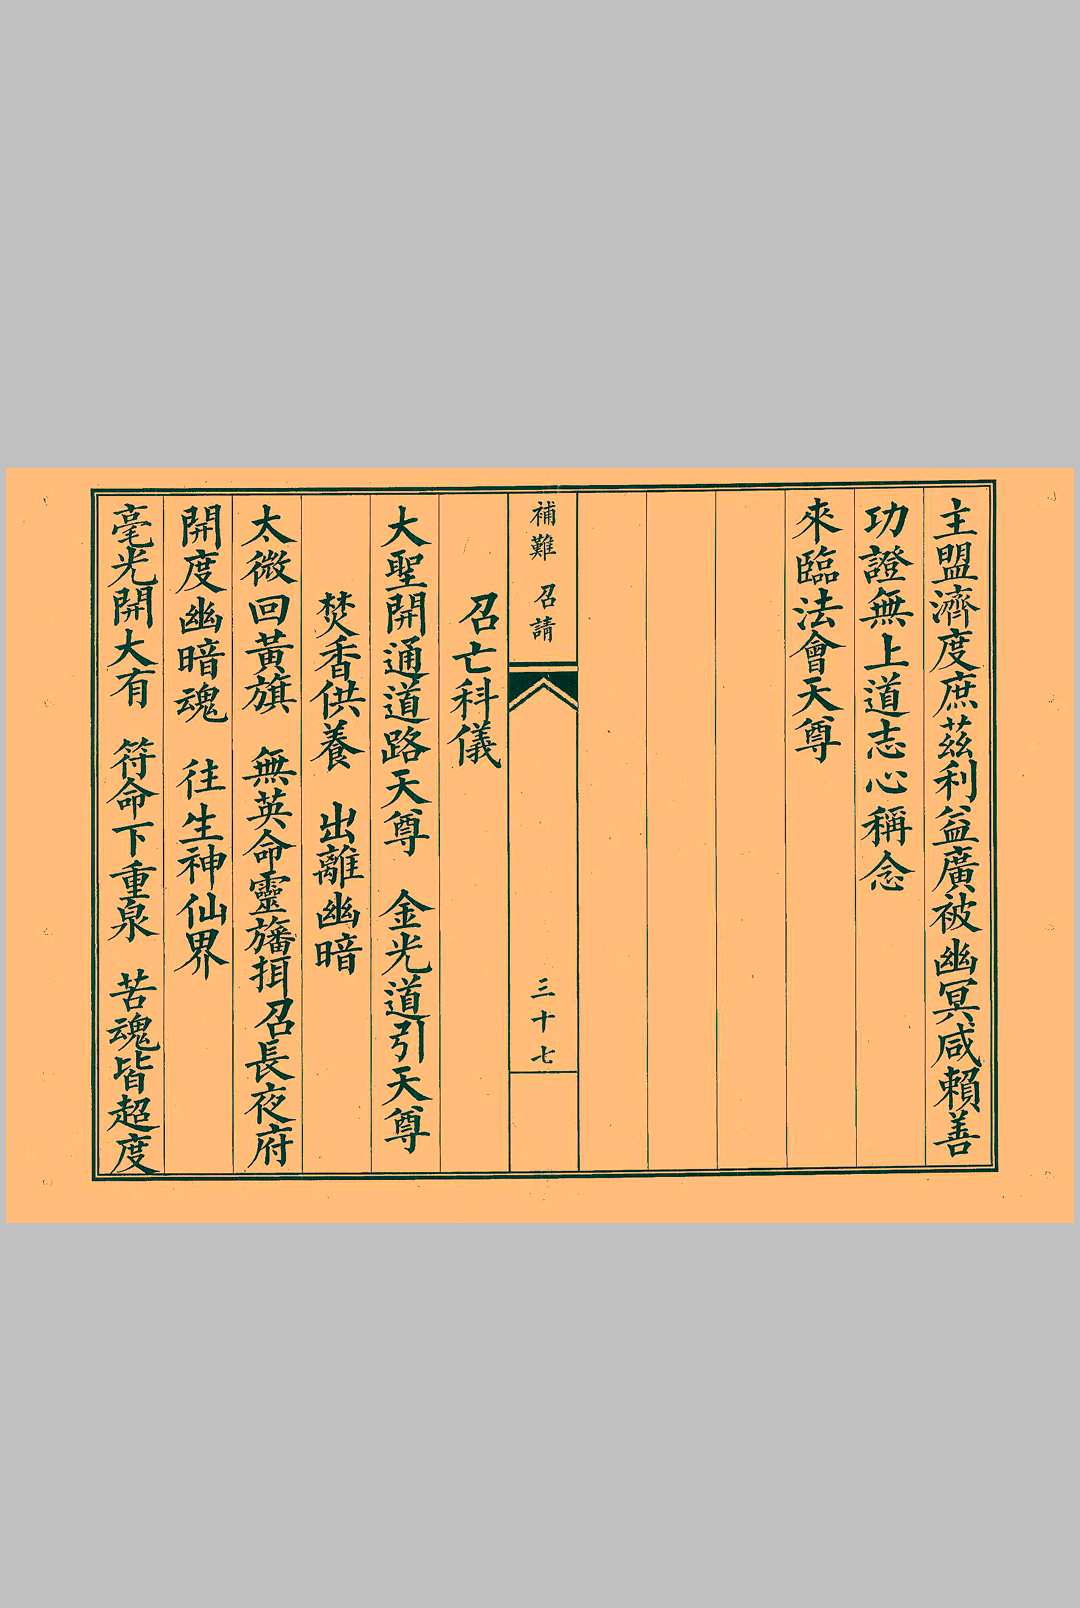 主盟濟度庶茲利益廣被幽冥咸賴善
功證無上道志心稱念
來臨法會天尊
補難 召請
三十七
召亡科儀
大聖開通道路天尊 金光道引天尊
焚香供養 出離幽暗
太微回黃旗 無英命靈旛揖召長夜府
開度幽暗魂 往生神仙界
毫光開大有 符命下重泉 苦魂皆超度